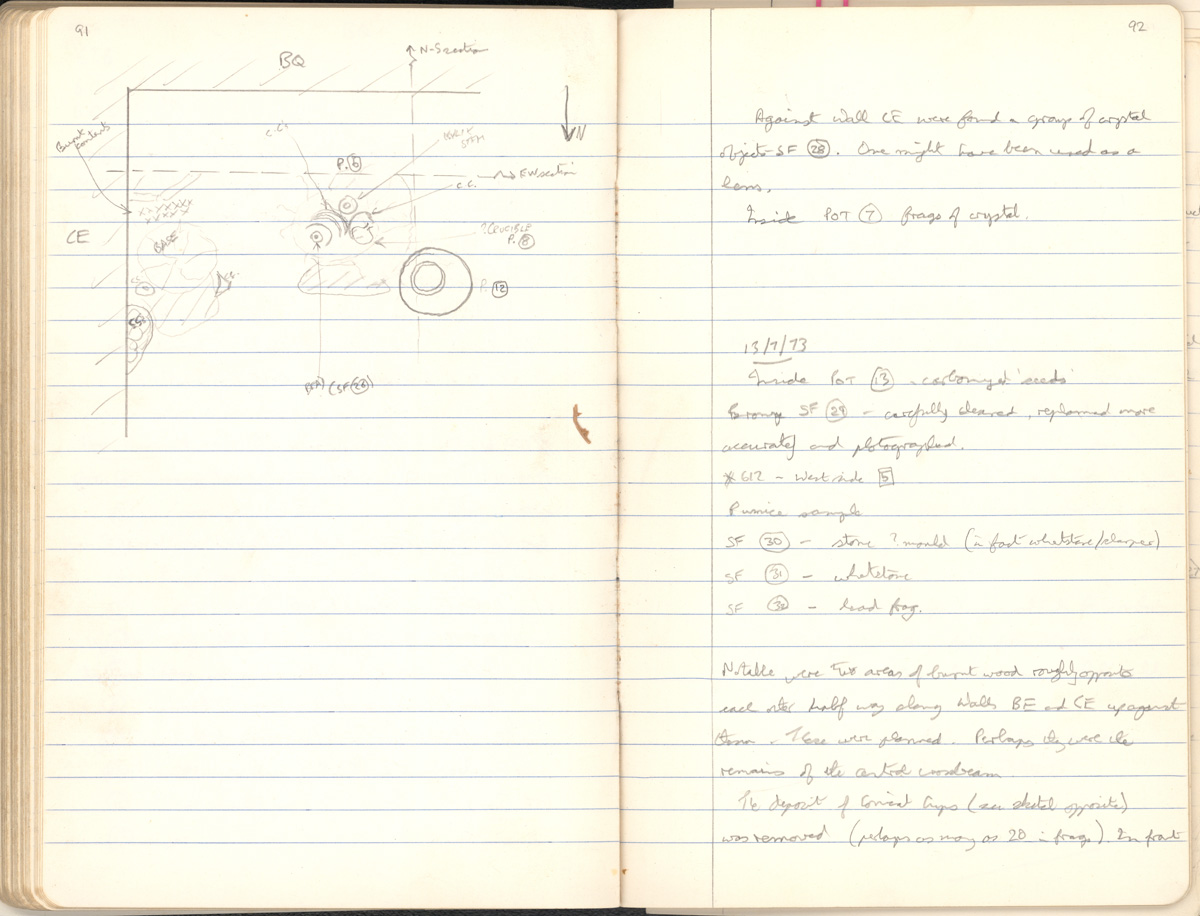 91
BQ
N-S section
N
Burnt contents
C.C.
P. 6
KYLIX STEM
EW section
C.C.
CE
BASE
? CRUCIBLE
P. 8
C.C.
P. 12
C.C.
(SF 26)
92
Against Wall CE were found a group of crystal
objects SF 28. One might have been used as a
lens.
Inside POT 7 frags of crystal.
13/7/73
Inside POT 13 - carbonized 'seeds'
Bronze SF 29 - carefully cleaned, replanned more
accurately and photographed.
* 612 - West side 5
Pumice sample
SF 30 - stone ? mould (in fact whetstone/
SF 31 - whetstone
SF 32 - lead frag.
Notable were two areas of burnt wood roughly opposite
each other half way along Walls BE and CE up against
them. These were planned. Perhaps they were the
remains of the central crossbeam
The deposit of Conical Cups (see sketch opposite)
was removed (perhaps as many as 20 in frags). In front